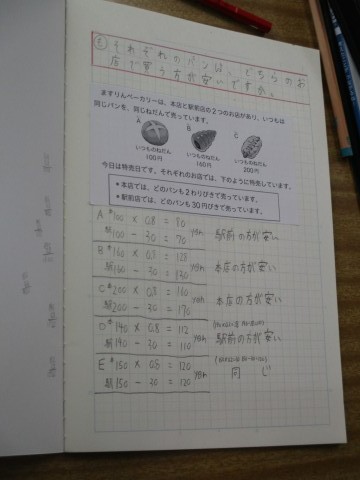 ㋲ それぞれのパンは、どちらのお
店で買う方が安いですか。
ますりんベーカリーは、本店と駅前店の2つのお店があり、いつもは
同じパンを、同じねだんで売っています。
A B C
いつものねだん いつものねだん いつものねだん
100円 160円 200円
今日は特売日です。それぞれのお店では、下のように特売しています。
•本店では、どのパンも2わりびきで売っています。
•駅前店では、どのパンも30円びきで売っています。
A 本100 × 0.8 = 80
駅100 - 30 = 70 yen 駅前の方が安い
B 本160 × 0.8 = 128
駅160 - 30 = 130 yen 本店の方が安い
C 本200 × 0.8 = 160
駅200 - 30 = 170 yen 本店の方が安い
D 本140 × 0.8 = 112
駅140 - 30 = 110 yen 駅前の方が安い
E 本150 × 0.8 = 120
駅150 - 30 = 120 yen 同じ